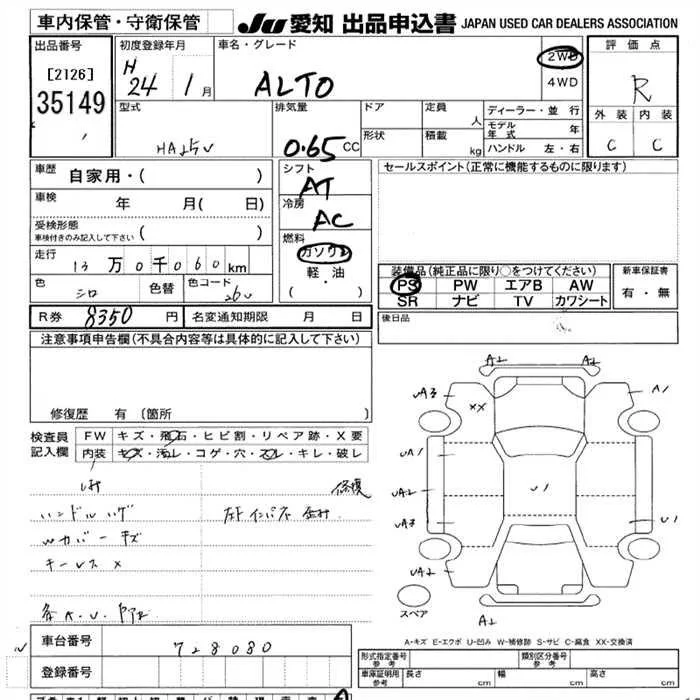 車内保管・守衛保管
JU 愛知 出品申込書 JAPAN USED CAR DEALERS ASSOCIATION
出品番号
[2126]
35149
初度登録年月
H 24 年 1 月
車名・グレード
ALTO
2WD
4WD
評価点
R
外装 内装
C C
型式
HA25V
排気量
0.65 CC
ドア
形状
定員 人
積載 kg
ディーラー・並行
モデル年式 年
ハンドル 左・右
車歴 自家用・( )
車検 年 月( 日)
受検形態
車検付きのみ記入して下さい ( )
走行
13 万 0 千 0 6 0 km
色 シロ 色替 色コード 26U
シフト
AT
冷房
AC
燃料
ガソリン
軽・油
( ・ )
セールスポイント(正常に機能するものに限ります)
装備品(純正品に限り○をつけてください)
PS PW エアB AW
SR ナビ TV カワシート
新車保証書
有・無
後日品
R券 8350 円 名変通知期限 月 日
注意事項申告欄(不具合内容等は具体的に記入して下さい)
修復歴 有(箇所
検査員記入欄
FW キズ・飛石・ヒビ割・リペア跡・X要
内装 キズ・汚レ・コゲ・穴・スレ・キレ・破レ
修復
ハンドルハゲ
Wカバーキズ
キーレス X
A2 A2
UA3 XX A1
UA1
UA2 U1
UA3 U1
UA2
A2
スペア
A-キズ E-エクボ U-凹み W-補修跡 S-サビ C-腐食 XX-交換済
車台番号 728080
登録番号
形式指定番号 参考
類別区分番号 参考
車庫証明用 参考 長さ cm 幅 cm 高さ cm